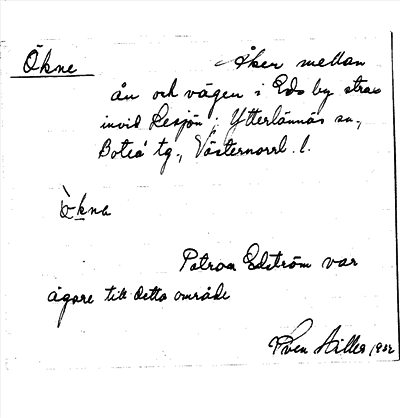 Ökne
Åker mellan
ån och vägen i Eds by strax
invid Lesjön i Ytterlännäs sn,
Boteå tg., Västernorrl. l.
Ökna
Patron Edström var
ägare till detta område
Sven Hiller